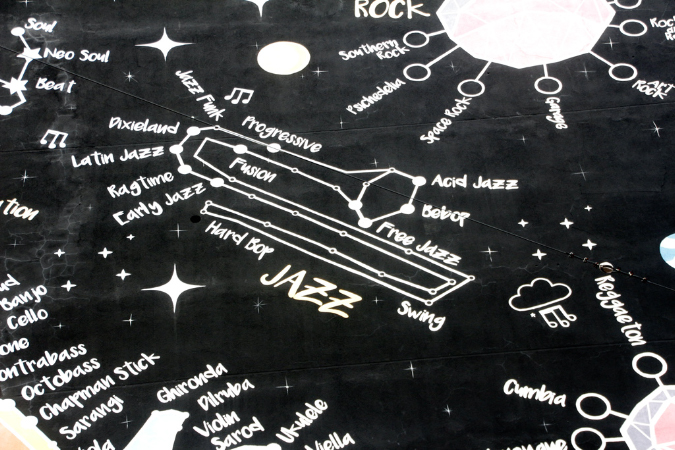 ROCK
Southern
Rock
Psichedelia
Space Rock
Garage
Art
Rock
Rock
Soul
Neo Soul
Beat
Jazz Funk
Dixieland
Progressive
Latin Jazz
Fusion
Ragtime
Early Jazz
Acid Jazz
Bebop
Free Jazz
Hard Bop
JAZZ
Swing
Reggaeton
Cumbia
Banjo
Cello
ontrabass
Octobass
Chapman Stick
Sarangi
Ghironda
Dilruba
Violin
Sarod
Ukulele
Viella